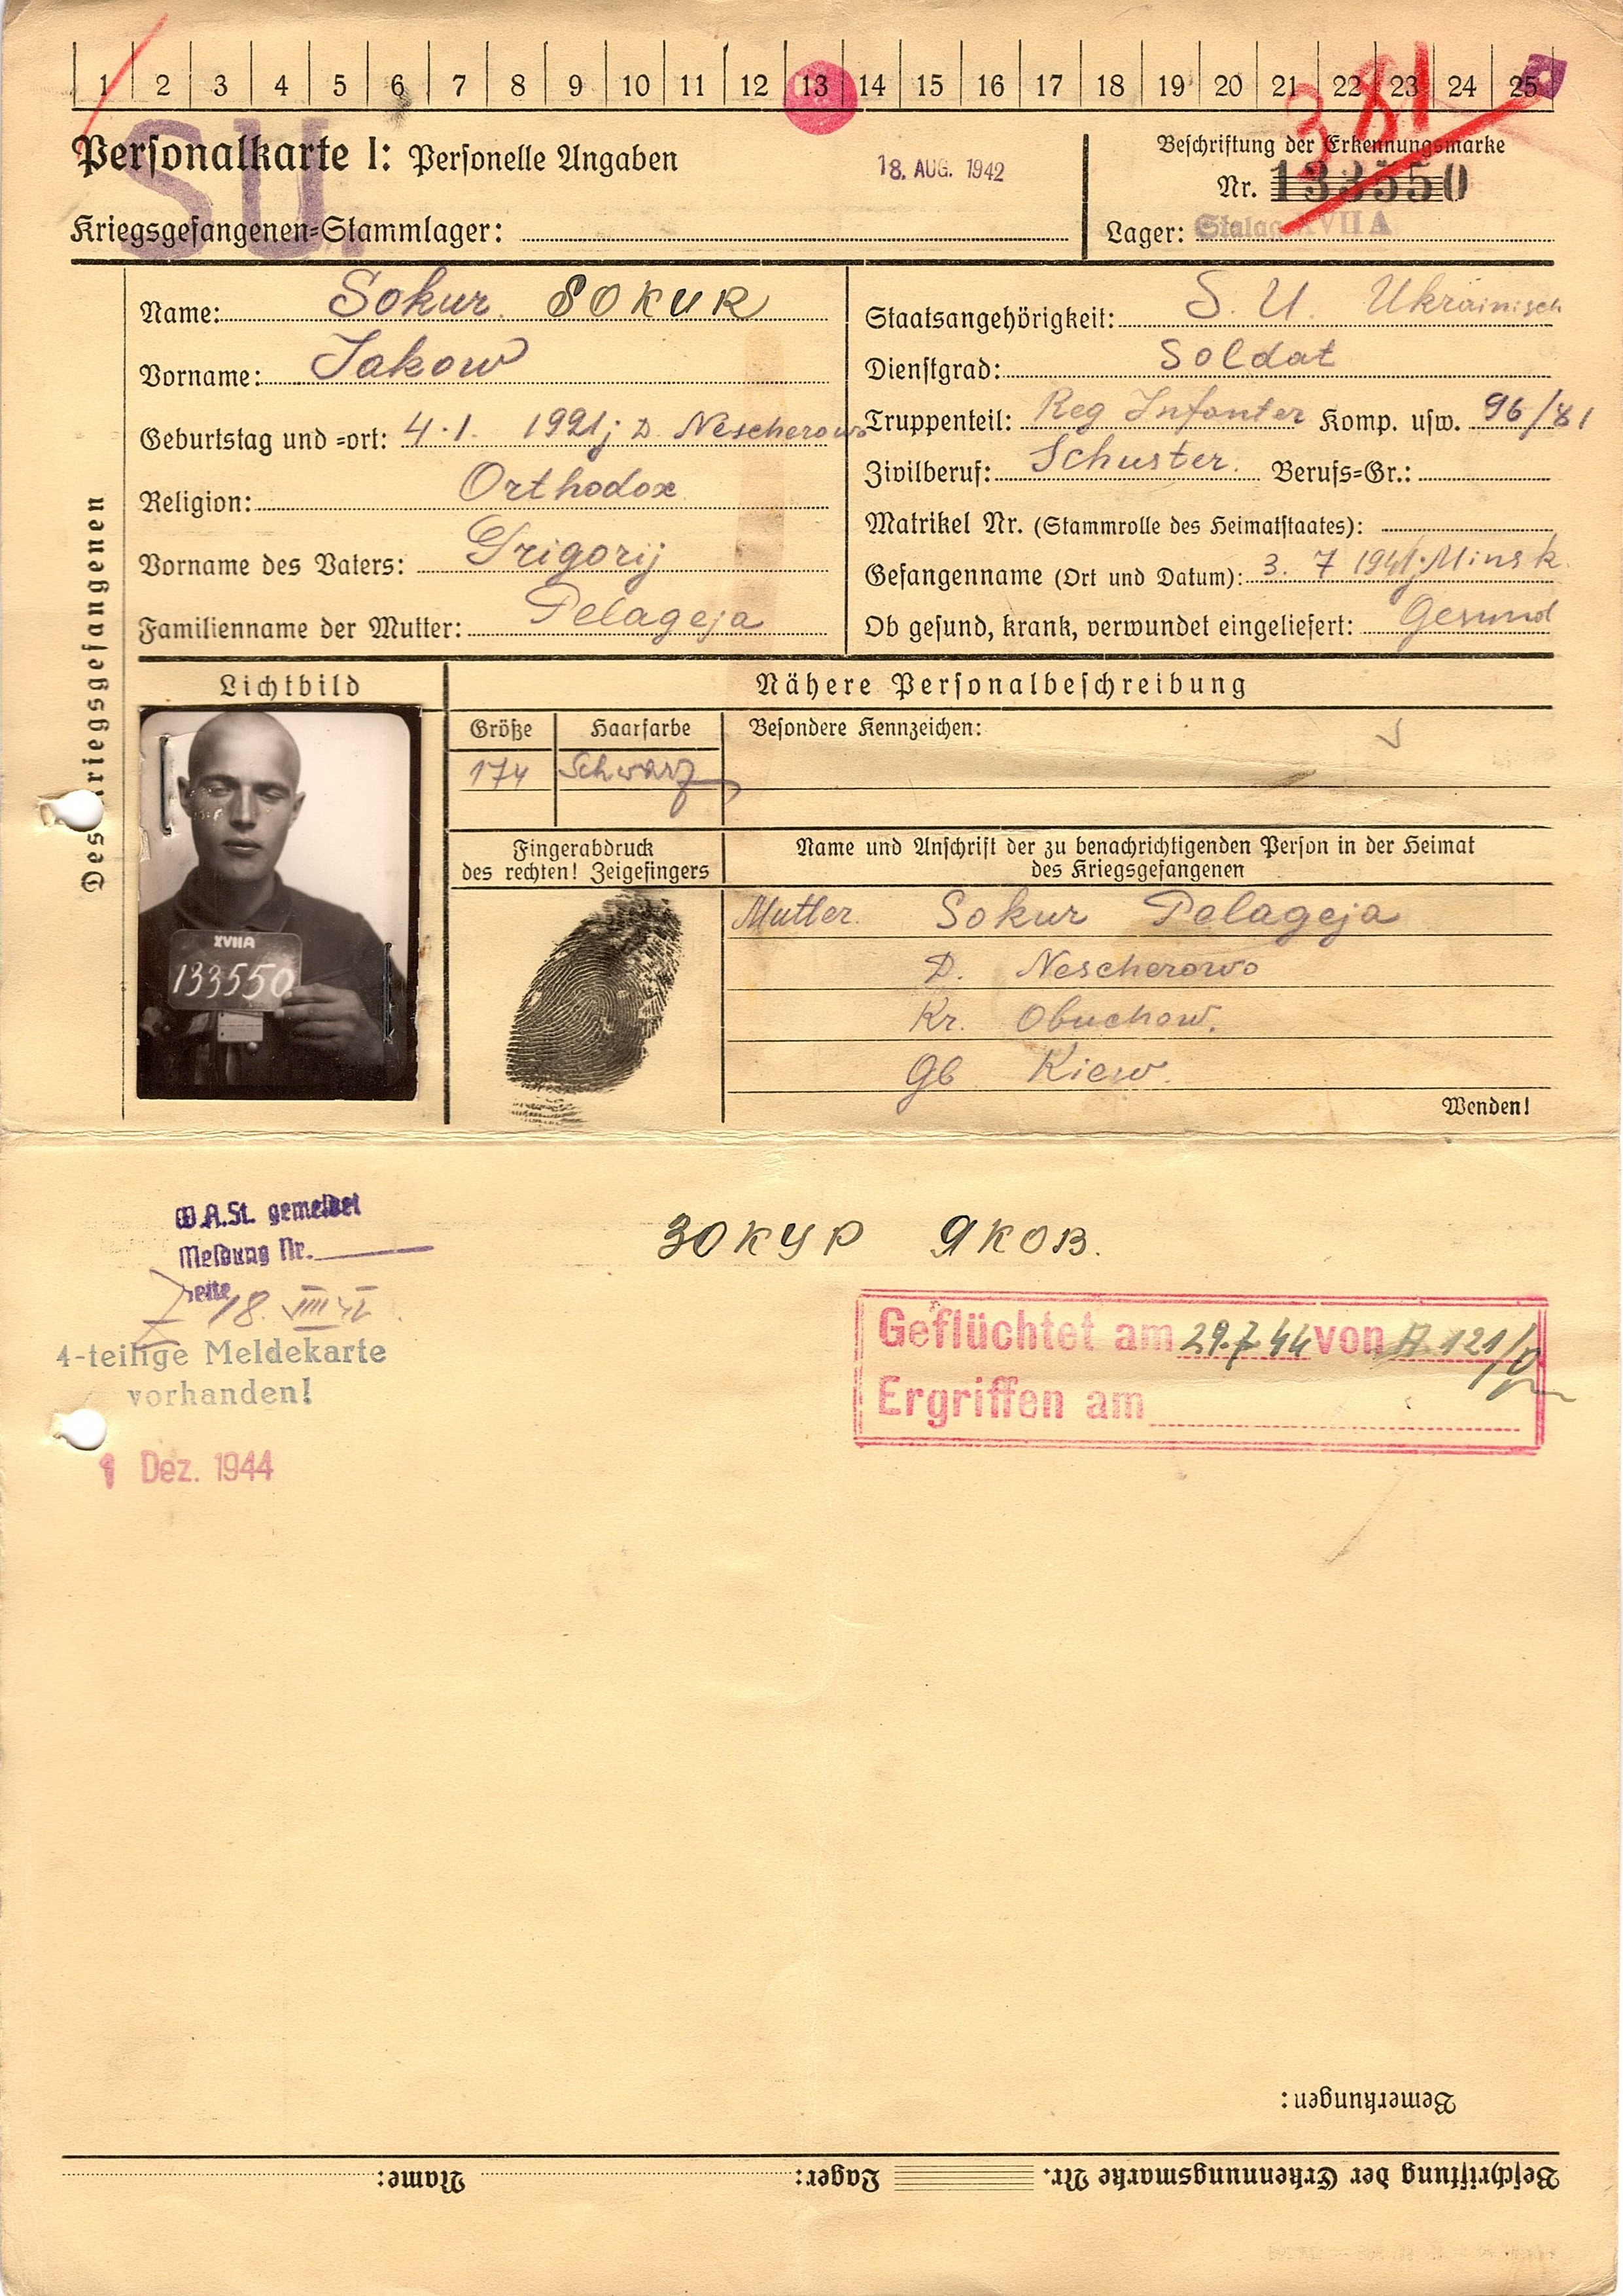 1 2 3 4 5 6 7 8 9 10 11 12 13 14 15 16 17 18 19 20 21 22 23 24 25
381
SU.
Personalkarte I: Personelle Angaben
18. AUG. 1942
Beschriftung der Erkennungsmarke
Nr. 133550
Kriegsgefangenen=Stammlager:
Lager: Stalag XVII A
Des Kriegsgefangenen
Name: Sokur. SOKUR
Vorname: Jakow
Geburtstag und =ort: 4.1. 1921; D. Nescherowo
Religion: Orthodox
Vorname des Vaters: Grigorij
Familienname der Mutter: Pelageja
Staatsangehörigkeit: S. U. Ukrainisch
Dienstgrad: Soldat
Truppenteil: Reg Infanter Komp. usw. 96/81
Zivilberuf: Schuster. Berufs=Gr.:
Matrikel Nr. (Stammrolle des Heimatstaates):
Gefangenname (Ort und Datum): 3. 7 1941; Minsk.
Ob gesund, krank, verwundet eingeliefert: Gesund
Lichtbild
Nähere Personalbeschreibung
Größe Haarfarbe Besondere Kennzeichen:
174 Schwarz
XVIIA
133550
Fingerabdruck
des rechten! Zeigefingers
Name und Anschrift der zu benachrichtigenden Person in der Heimat
des Kriegsgefangenen
Mutter. Sokur Pelageja
D. Nescherowo
Kr. Obuchow.
Gb Kiew.
Wenden!
W.A.St. gemeldet
Meldung Nr.
18. VIII 42
4-teilige Meldekarte
vorhanden!
1 Dez. 1944
ЗОКУР ЯКОВ.
Geflüchtet am 29.7.44 von A 121/
Ergriffen am
Bemerkungen:
Beschriftung der Erkennungsmarke Nr. Lager: Name: